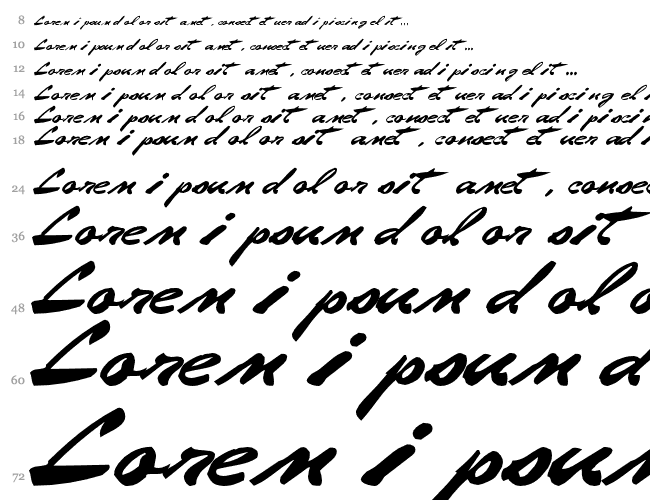 8 Lorem ipsum dolor sit amet, consect et uer adipiscing elit...
10 Lorem ipsum dolor sit amet, consect et uer adipiscing elit...
12 Lorem ipsum dolor sit amet, consect et uer adipiscing elit...
14 Lorem ipsum dolor sit amet, consect et uer adipiscing el i
16 Lorem ipsum dolor sit amet, consect et uer adipiscin
18 Lorem ipsum dolor sit amet, consect et uer ad i
24 Lorem ipsum dolor sit amet, consec
36 Lorem ipsum dolor sit
48 Lorem ipsum dol o
60 Lorem ipsum d
72 Lorem ipsum